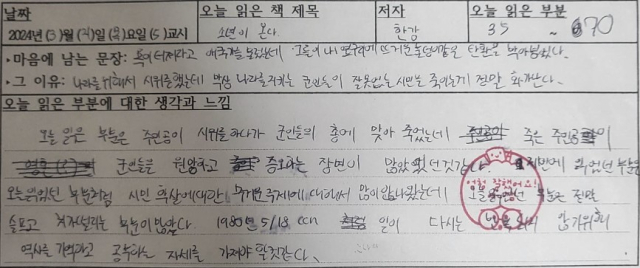 날짜 오늘 읽은 책 제목 저자 오늘 읽은 부분
2024년 (5)월 (21)일 ( )요일 (5)교시 소년이 온다. 한강 35 ~ 70
• 마음에 남는 문장: 목이 터져라고 애국가를 보르는데 그들이 내 옆구리에 뜨거운 탄환을 박아넣었다.
• 그 이유: 나라를 위해서 시위를 했는데 막상 나라를 지키는 군인들이 잘못없는 시민을 죽이는게 정말 화가난다.
오늘 읽은 부분에 대한 생각과 느낌
오늘 읽은 부분은 주인공이 시위를 하다가 군인들의 총에 맞아 죽었는데 죽은 주인공이
군인들을 원망하고 증오하는 장면이 많았던것같다 전에 읽었던 부분은
오늘 읽었던 부분처럼 시민 학살에 대한 무거운 주제에 대해서 많이 나왔는데 오늘 읽었던 부분은 정말
슬프고 부분이 많았다 1980년 5/18 일이 다시는
역사를 기억하고 공부하는 자세를 가져야 할것같다.
참 잘했어요!